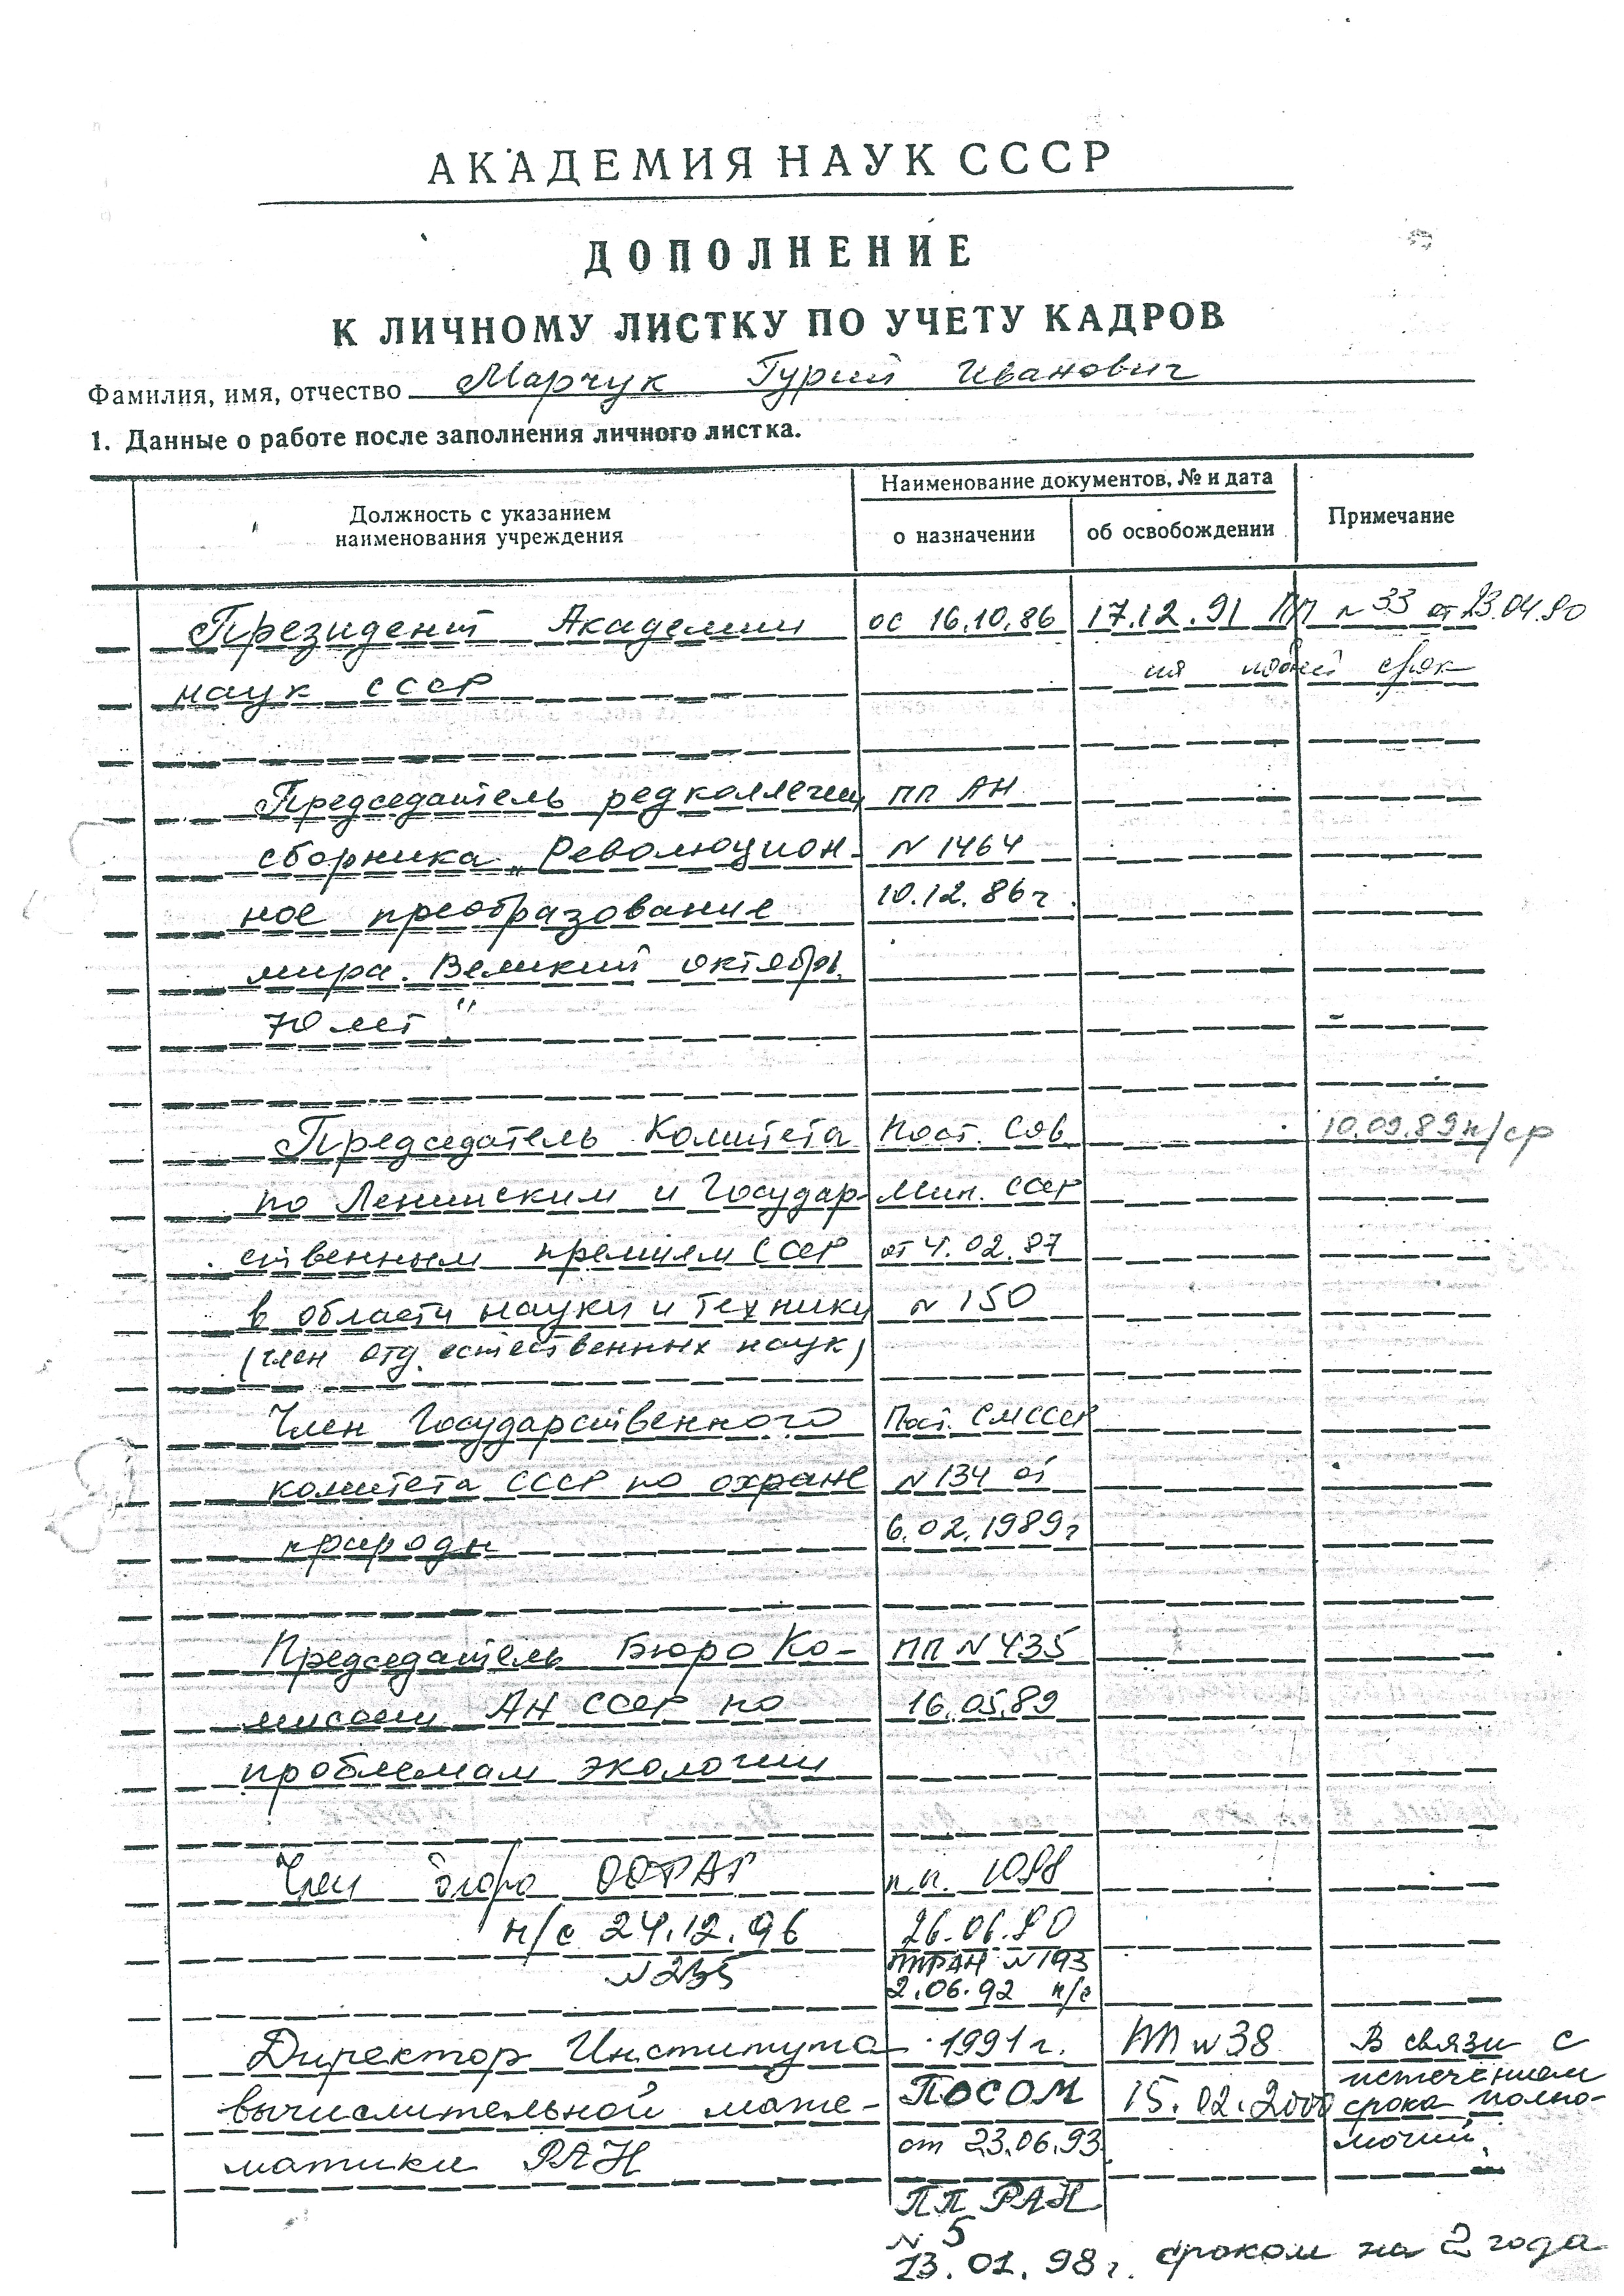 АКАДЕМИЯ НАУК СССР
ДОПОЛНЕНИЕ
К ЛИЧНОМУ ЛИСТКУ ПО УЧЕТУ КАДРОВ
Фамилия, имя, отчество Марчук Гурий Иванович
1. Данные о работе после заполнения личного листка.
Должность с указанием наименования учреждения
Наименование документов, № и дата
о назначении
об освобождении
Примечание
Президент Академии ос 16.10.86 17.12.91 ПП № 33 от 23.04.90
наук СССР срок
Председатель редколлегии ПП АН
сборника „Революцион- N 1464
ное преобразование 10.12.86г.
мира. Великий октябрь.
70 лет"
Председатель Комитета Пост. Сов 10.09.89 н/ср
по Ленинским и Государ- Мин. СССР
ственным премиям СССР от 4.02.87
в области науки и техники N 150
(член отд. естественных наук)
Член Государственного Пост. СМСССР
комитета СССР по охране N 134 от
природы 6.02.1989г
Председатель Бюро Ко- ПП N 435
миссии АН СССР по 16.05.89
проблемам экологии
Член бюро ООФАГ п.п.
н/с 24.12.96 26.06.90
N 235 ППРАН N 193
2.06.92 н/с
Директор Института 1991 г. ПП N 38 В связи с
вычислительной мате- ПОСОМ 15.02.2000 истечением
матики РАН от 23.06.93. срока полно-
мочий.
ПП РАН
N 5
13.01.98г. сроком на 2 года